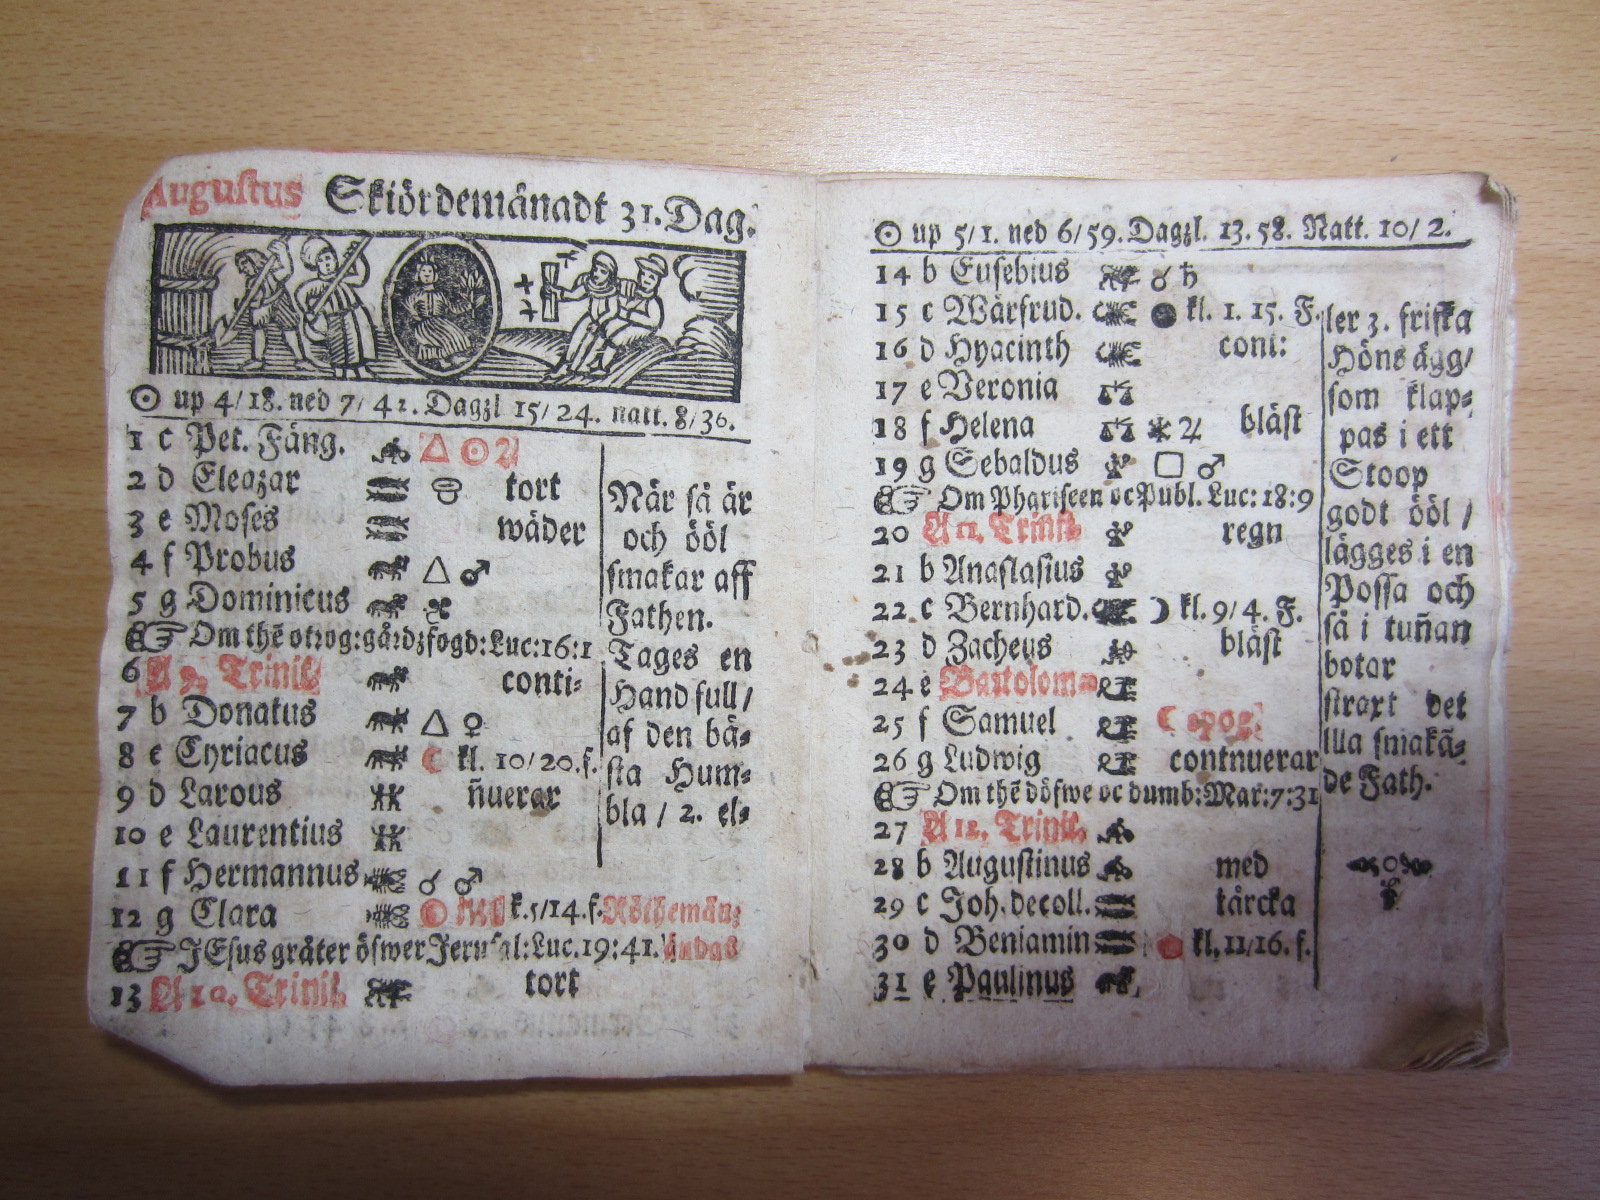 Augustus Skiördemånadt 31. Dag.
☉ up 4/18. ned 7/41. Dagzl 15/24. natt. 8/36.
1 c Pet. Fäng. △ ☉ ♃
2 d Eleazar tort
3 e Moses wäder
4 f Probus △ ♂
5 g Dominicus
Om thē otrog:gårdzfogd:Luc:16:1
6 A 9. Trinit.
conti-
7 b Donatus △ ♀
8 c Cyriacus ☾ kl. 10/20. f.
9 d Larous ñuerar
10 e Laurentius
11 f Hermannus ☌ ♂
12 g Clara k. 5/14. f. Röthemån:
JEsus gråter öfwer Jerusal:Luc.19:41. ändas
13 A 10. Trinit. tort
När så är
och ööl
smakar aff
Fathen.
Tages en
Hand full /
af den bä-
sta Hum-
bla / 2. el-
☉ up 5/1. ned 6/59. Dagzl. 13. 58. Natt. 10/2.
14 b Eusebius ☌ ♄
15 c Wårfrud. ● kl. 1. 15. F.
16 d Hyacinth conti:
17 e Veronia
18 f Helena ⚹ ♃ bläst
19 g Sebaldus □ ♂
Om Phariseen oc Publ. Luc: 18:9
20 A 11. Trinit. regn
21 b Anastasius
22 c Bernhard. ☽ kl. 9/4. F.
23 d Zacheus bläst
24 e Bartolom
25 f Samuel ☾ apog.
26 g Ludwig contnuerar
Om thē döfwe oc dumb:Mar:7:31
27 A 12. Trinit.
28 b Augustinus med
29 c Joh. decoll. tårcka
30 d Beniamin kl. 11/16. f.
31 e Paulinus
ler 3. friska
Höns ägg/
som klap-
pas i ett
Stoop
godt ööl /
lägges i en
Possa och
så i tuñan
botar
straxt det
illa smakā-
de Fath.